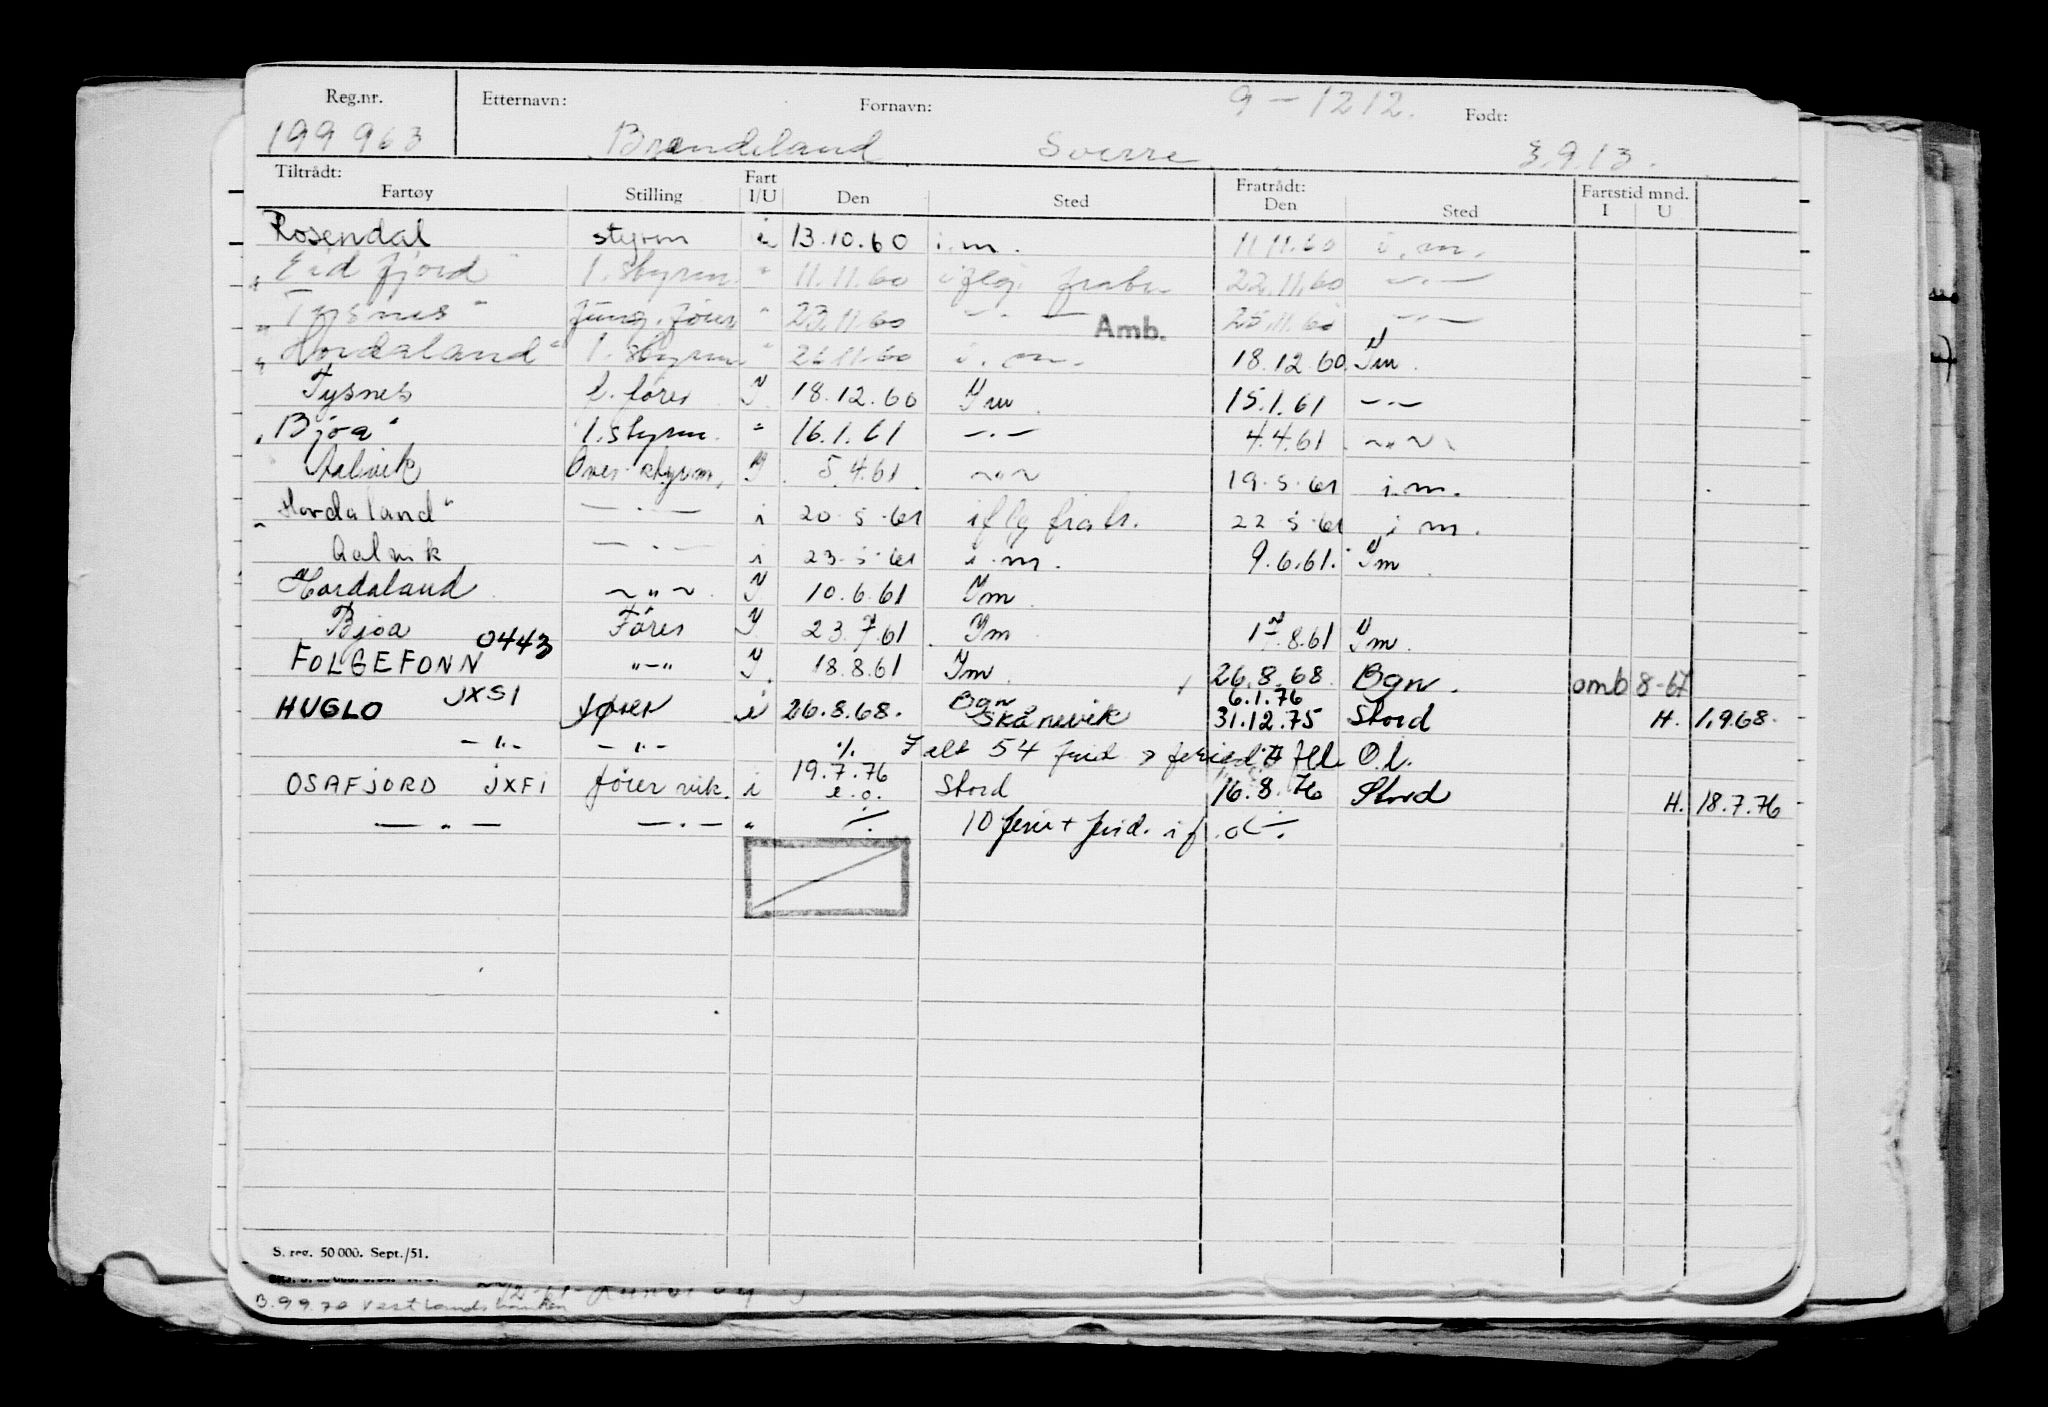 Reg.nr. Etternavn: Fornavn: 9-1212. Født:
199963 Brandeland Sverre 3.9.13.
Tiltrådt: Fart Fratrådt: Fartstid mnd.
Fartøy Stilling I/U Den Sted Den Sted I U
Rosendal styrm i 13.10.60 i.m. 11.11.60 i.m.
"Eidfjord" 1.styrm. " 11.11.60 iflg. frabr. 22.11.60 -.-
"Tysnes" fung. fører " 23.11.60 -.- Amb. 25.11.60 -.-
"Hordaland" 1. styrm " 26.11.60 i.m. 18.12.60 Im.
Tysnes f. förer I 18.12.60 Im. 15.1.61 -.-
"Bjoa" 1.styrm. " 16.1.61 -.- 4.4.61 ~"~
Aalvik Over styrm, I 5.4.61 ~"~ 19.5.61 i.m.
"Hordaland" -.- i 20.5.61 iflg frabr. 22.5.61 i m.
Aalvik -.- i 23.5.61 i.m. 9.6.61. Im
Hordaland ~"~ I 10.6.61 Im
Bjoa Förer I 23.7.61 Im 17.8.61 Im.
FOLGEFONN 0443 "-" I. 18.8.61 Im. 26.8.68. Bgn. omb 8-67
HUGLO JXSI fører i 26.8.68. Bgn Skånevik 6.1.76 31.12.75 Stord H. 1.9.68.
-"- -"- ./. I alt 54 frid
OSAFJORD JXFI förer vik. i 19.7.76 e.o. Stord 16.8.76 Stord H. 18.7.76
-"- -.- " ./. 10 ferie + frid. if.
S. reg. 50 000. Sept./51.
B.99.70 Vestlandsbanken